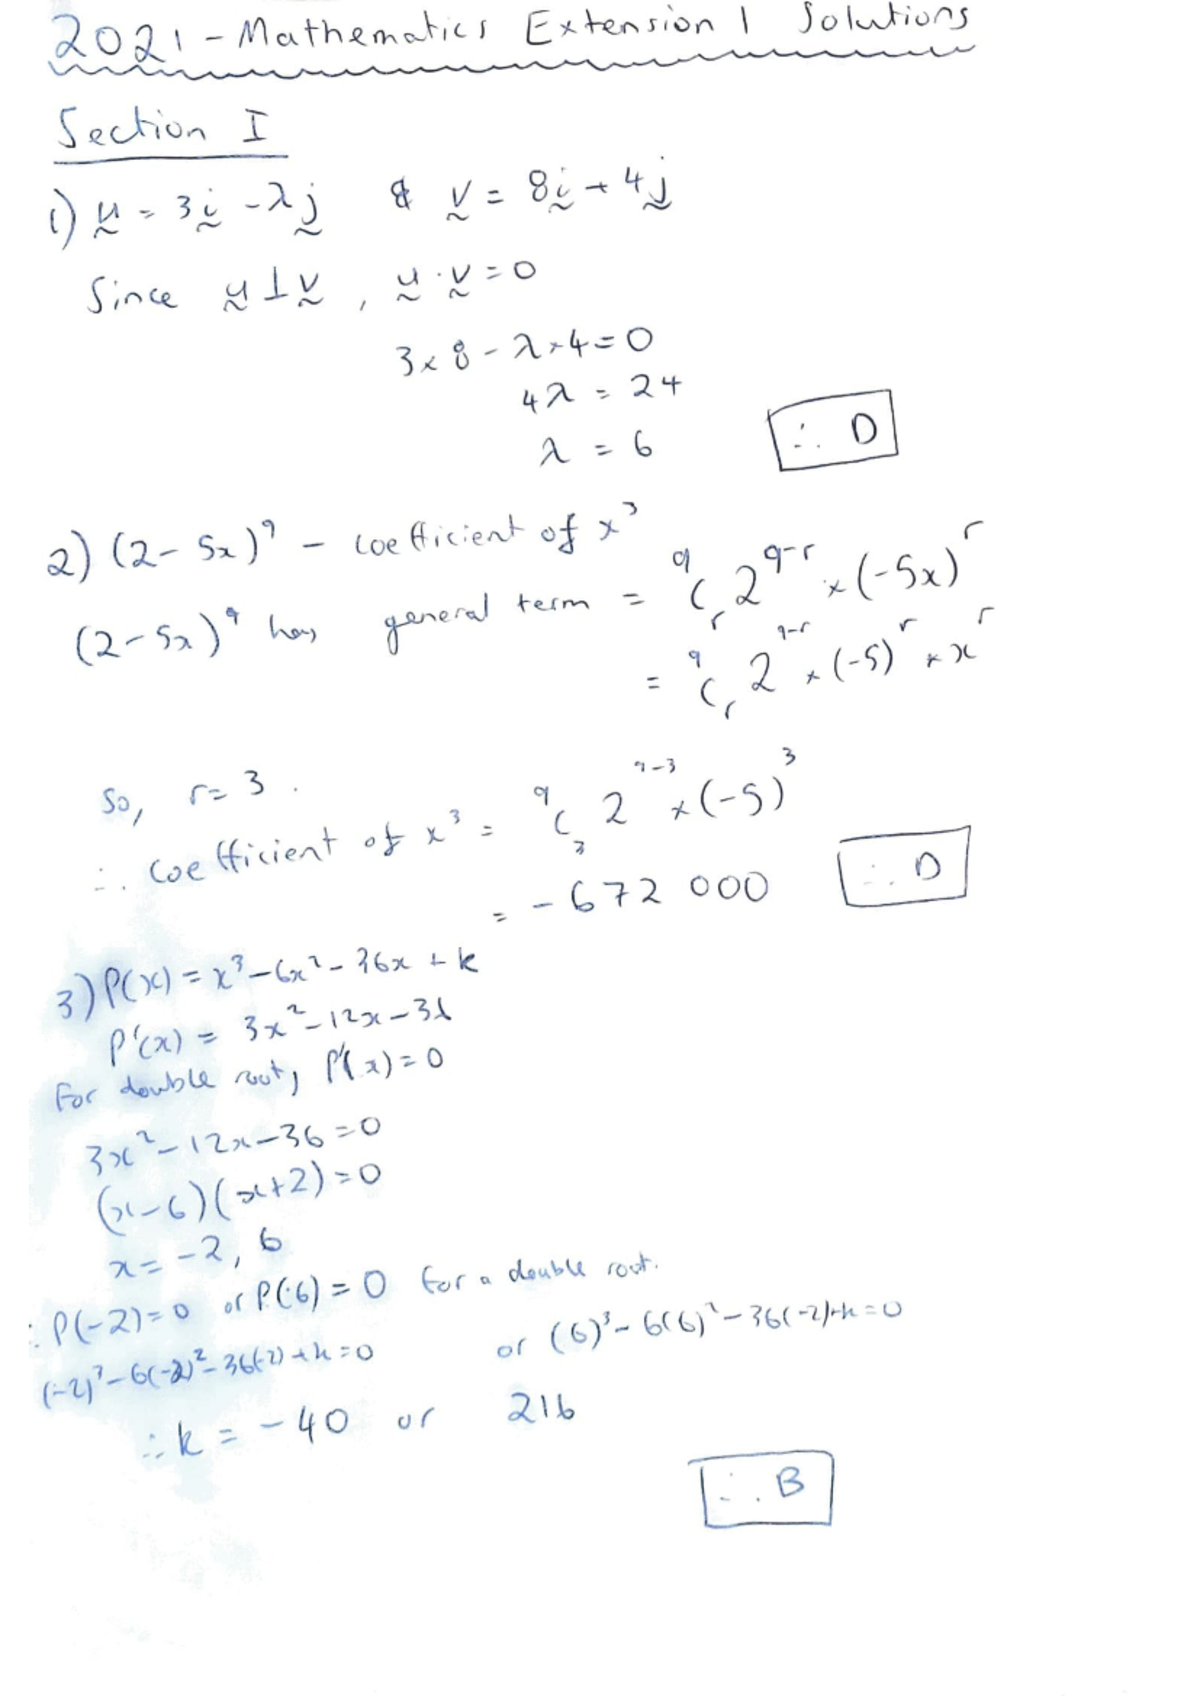 2021 - Mathematics Extension 1 Solutions
Section I
1) u = 3i - λj & v = 8i + 4j
Since u ⊥ v , u · v = 0
3 × 8 - λ × 4 = 0
4λ = 24
λ = 6
∴ D
2) (2 - 5x)⁹ - coefficient of x³
(2 - 5x)⁹ has general term = ⁹Cᵣ 2⁹⁻ʳ × (-5x)ʳ
= ⁹Cᵣ 2⁹⁻ʳ × (-5)ʳ × xʳ
So, r = 3 .
∴ coefficient of x³ = ⁹C₃ 2⁹⁻³ × (-5)³
= - 672 000
∴ D
3) P(x) = x³ - 6x² - 36x + k
P'(x) = 3x² - 12x - 36
For double root, P'(x) = 0
3x² - 12x - 36 = 0
(x - 6)(x + 2) = 0
x = -2, 6
∴ P(-2) = 0 or P(6) = 0 for a double root.
(-2)³ - 6(-2)² - 36(-2) + k = 0 or (6)³ - 6(6)² - 36(-2) + k = 0
∴ k = - 40 or 216
∴ B